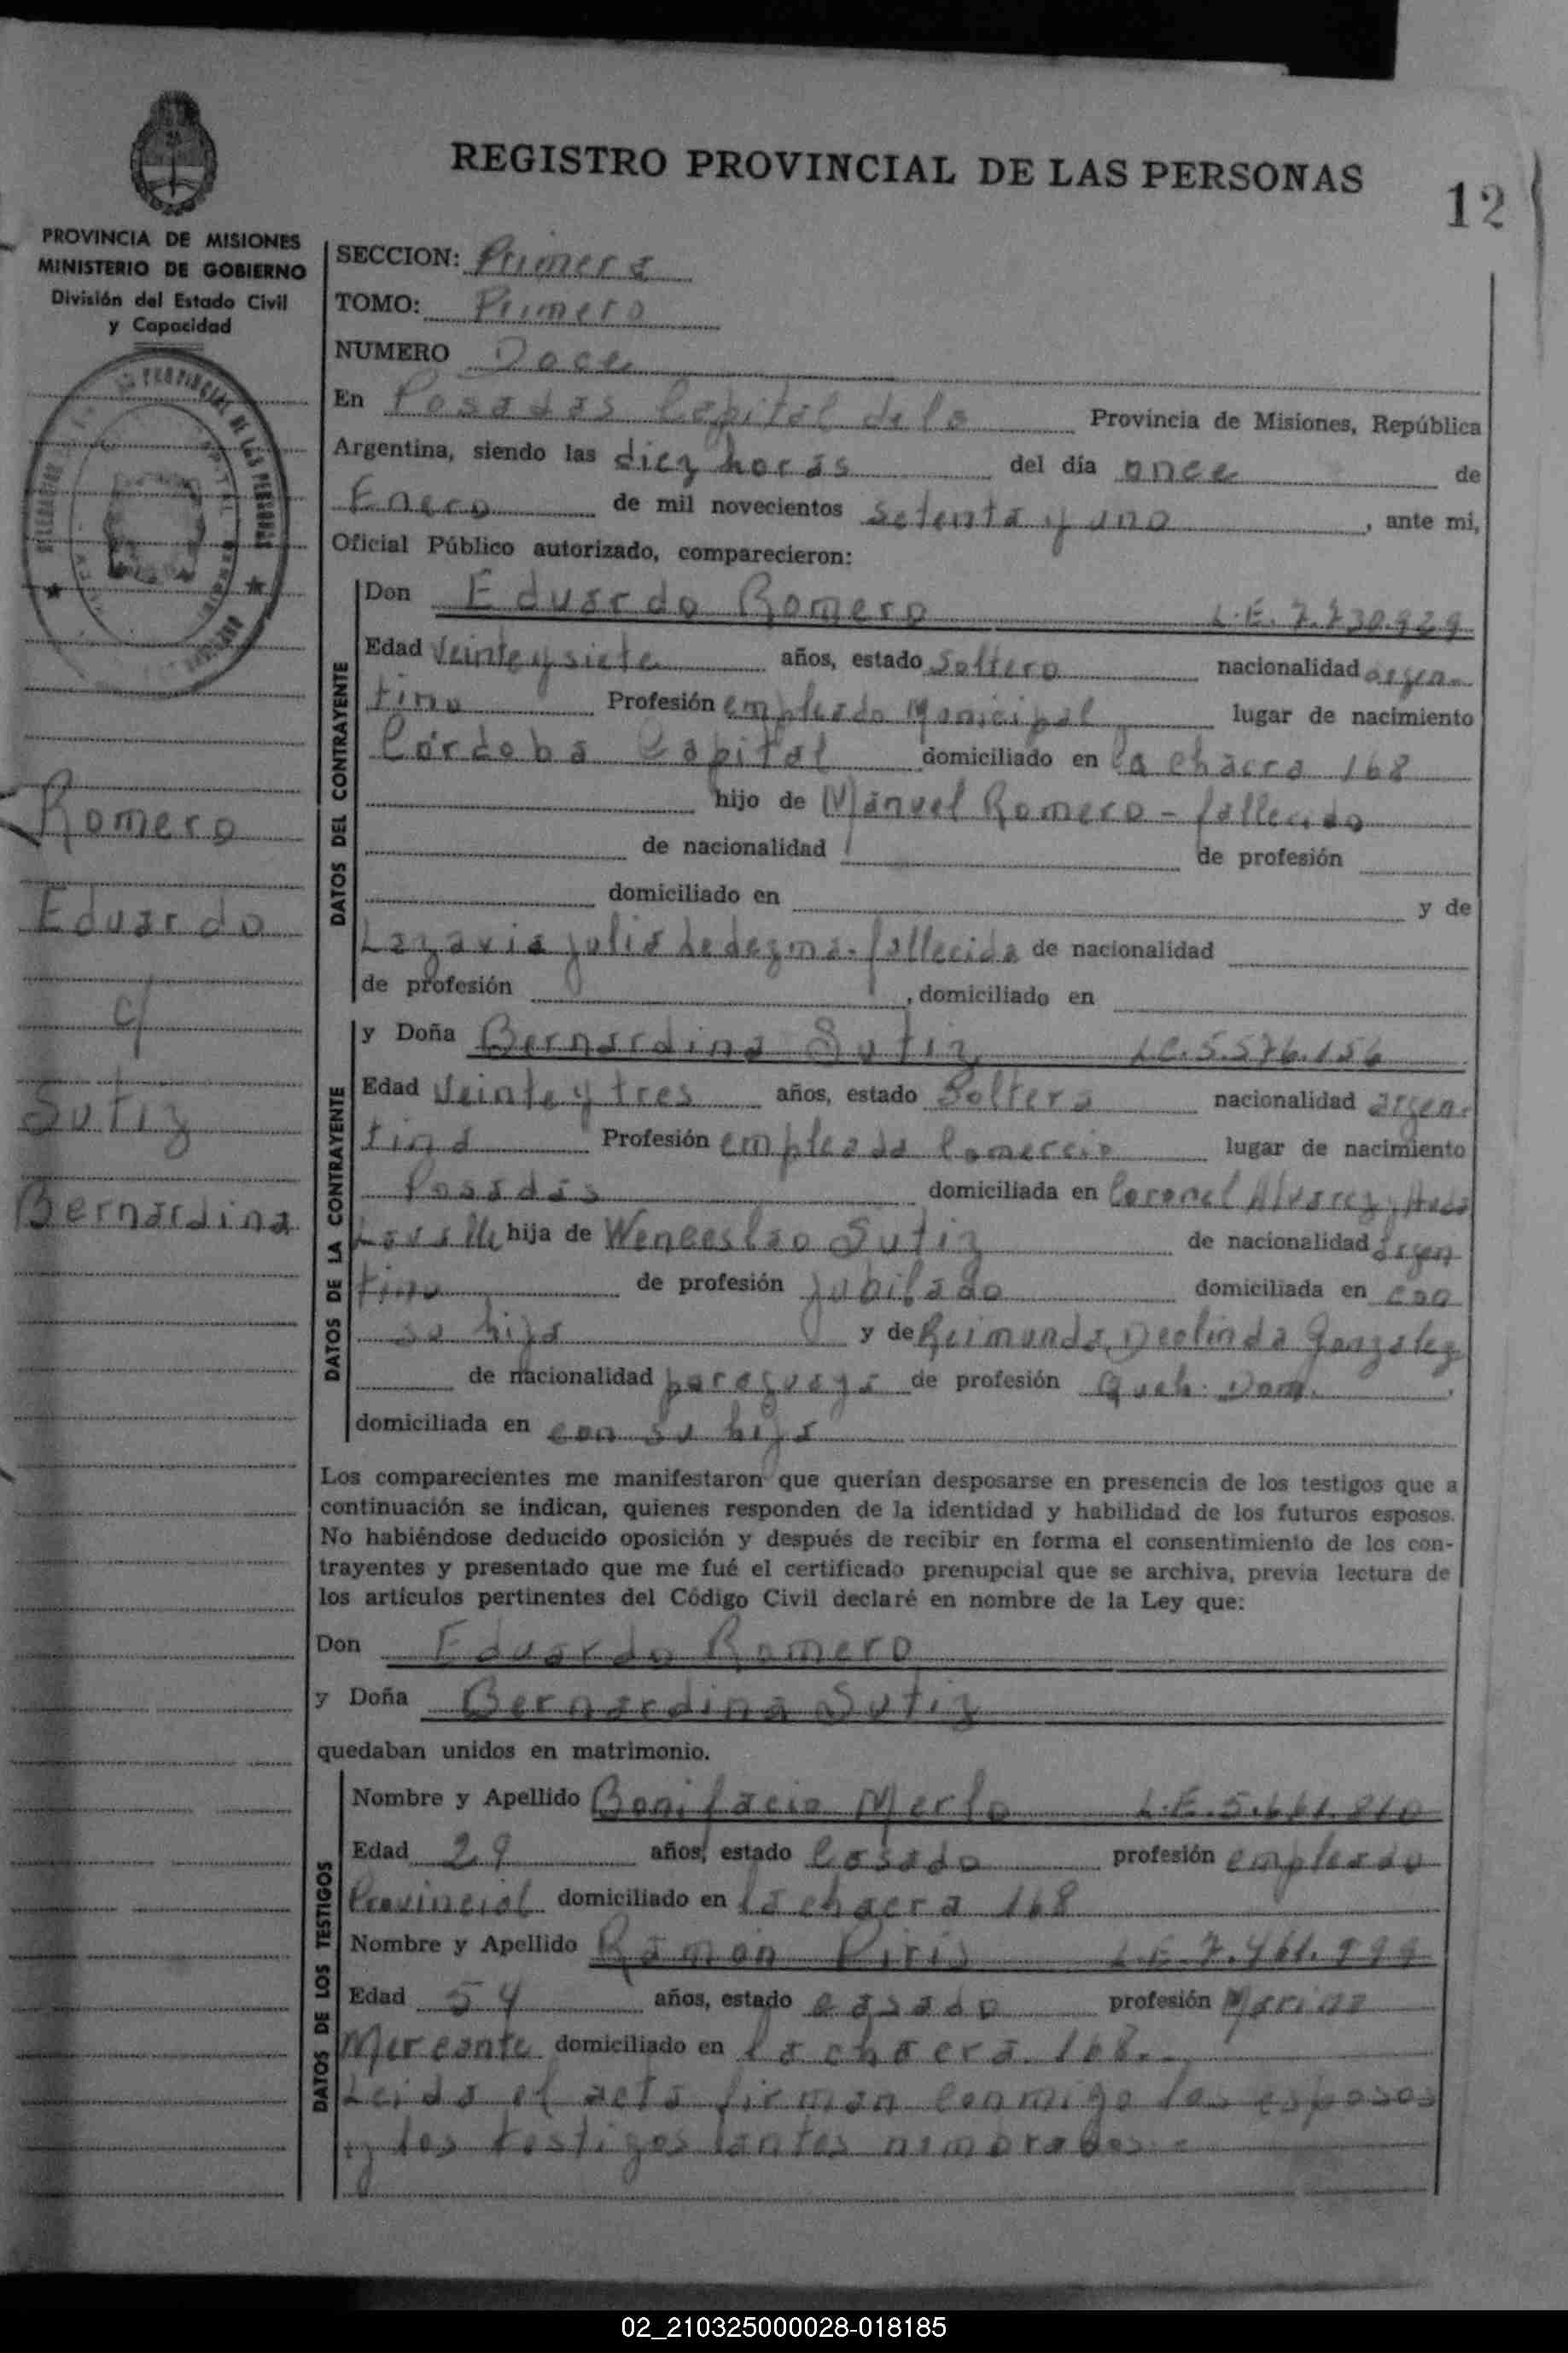 REGISTRO PROVINCIAL DE LAS PERSONAS
12
PROVINCIA DE MISIONES
MINISTERIO DE GOBIERNO
División del Estado Civil
y Capacidad
Romero
Eduardo
c/
Sutiz
Bernardina
SECCION: Primera
TOMO: Primero
NUMERO Doce
En Posadas Capital de la Provincia de Misiones, República
Argentina, siendo las diez horas del día once de
Enero de mil novecientos setenta y uno, ante mi,
Oficial Público autorizado, comparecieron:
DATOS DEL CONTRAYENTE
Don Eduardo Romero L.E. 7.830.929
Edad Veinte y siete años, estado Soltero nacionalidad argen-
tino Profesión empleado Municipal lugar de nacimiento
Córdoba Capital domiciliado en la chacra 168
hijo de Manuel Romero - fallecido
de nacionalidad de profesión
domiciliado en y de
julia Ledezma - fallecida de nacionalidad
de profesión , domiciliado en
DATOS DE LA CONTRAYENTE
y Doña Bernardina Sutiz L.C. 5.576.156
Edad Veinte y tres años, estado Soltera nacionalidad argen-
tina Profesión empleada Comercio lugar de nacimiento
Posadas domiciliada en Coronel Alvarez y Avda
Lavalle hija de Wenceslao Sutiz de nacionalidad argen
tino de profesión jubilado domiciliada en con
su hija y de Reimunda Deolinda Gonzalez
de nacionalidad paraguaya de profesión Queh. Dom.
domiciliada en con su hija
Los comparecientes me manifestaron que querían desposarse en presencia de los testigos que a
continuación se indican, quienes responden de la identidad y habilidad de los futuros esposos.
No habiéndose deducido oposición y después de recibir en forma el consentimiento de los con-
trayentes y presentado que me fué el certificado prenupcial que se archiva, previa lectura de
los artículos pertinentes del Código Civil declaré en nombre de la Ley que:
Don Eduardo Romero
y Doña Bernardina Sutiz
quedaban unidos en matrimonio.
DATOS DE LOS TESTIGOS
Nombre y Apellido Bonifacio Merlo L.E. 5.661.810
Edad 29 años, estado Casado profesión empleado
Provincial domiciliado en la chacra 168
Nombre y Apellido Ramon Piris L.E. 7.461.999
Edad 54 años, estado casado profesión Marina
Mercante domiciliado en la chacra 168.-
Leida el acta firman conmigo los esposos
y los testigos antes nombrados.-
02_210325000028-018185